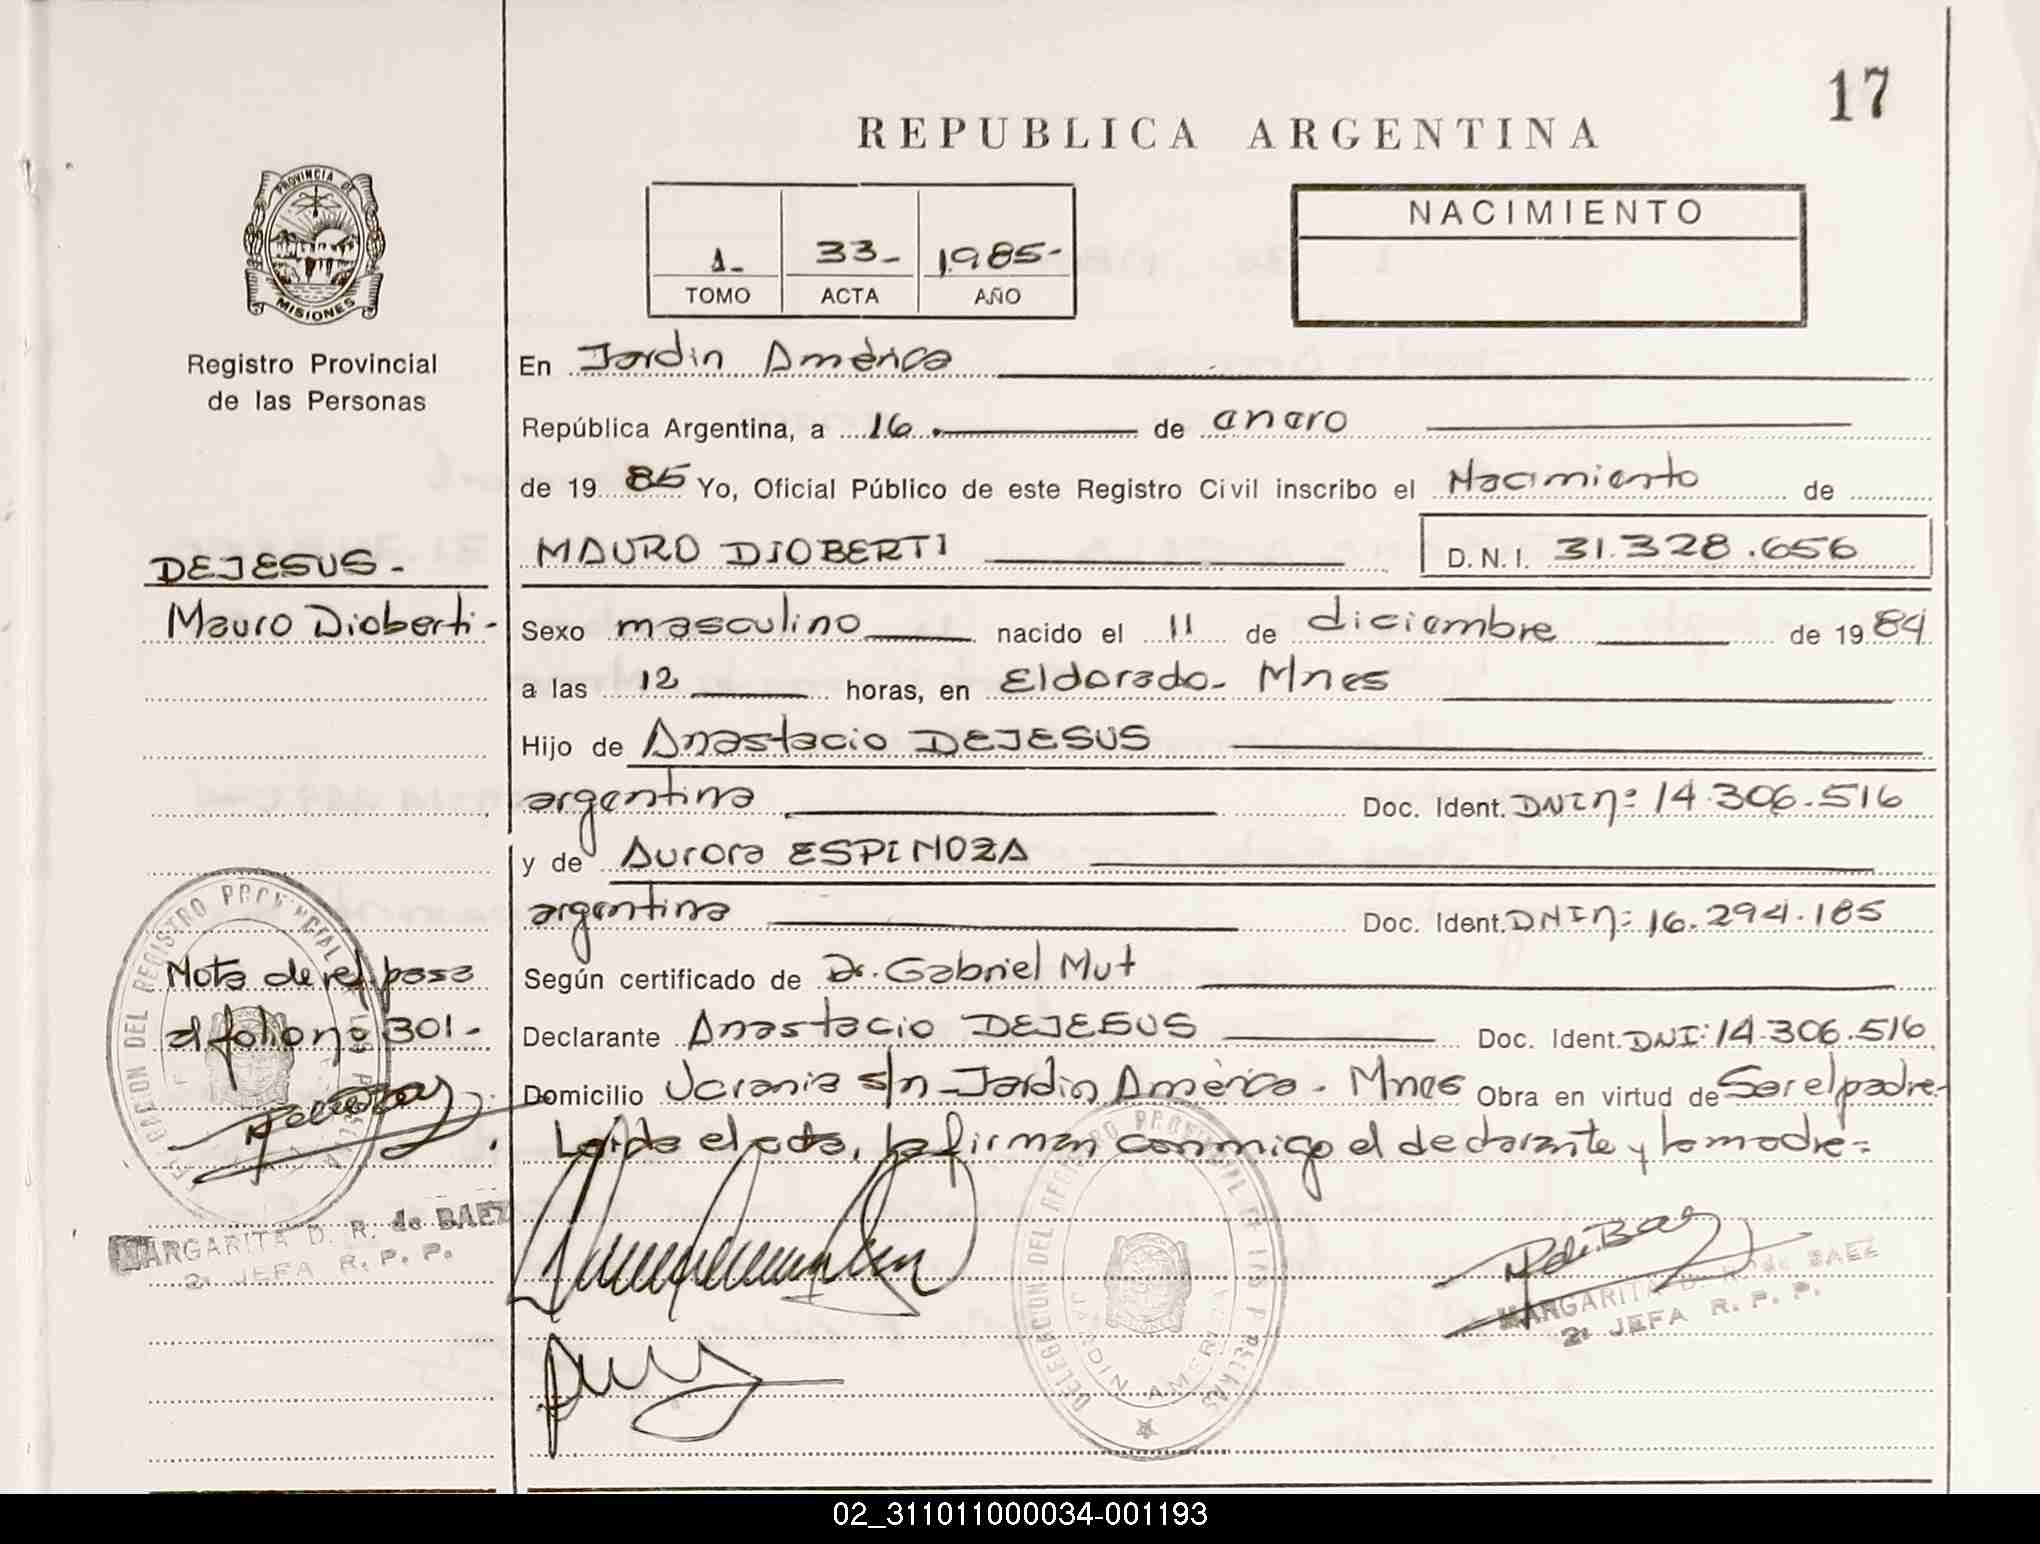 17
REPUBLICA ARGENTINA
PROVINCIA DE
MISIONES
Registro Provincial
de las Personas
1-
33-
1985-
TOMO
ACTA
AÑO
NACIMIENTO
En Jardin América
República Argentina, a 16 de enero
de 19 85 Yo, Oficial Público de este Registro Civil inscribo el Nacimiento de
DEJESUS.-
MAURO DIOBERTI
D.N.I. 31.328.656
Mauro Dioberti-
Sexo masculino nacido el 11 de diciembre de 19 84
a las 12 horas, en Eldorado- Mnes
Hijo de Anastacio DEJESUS
argentina Doc. Ident. DNI nº 14.306.516
y de Aurora ESPINOZA
argentina Doc. Ident. DNI n: 16.294.185
Según certificado de Dr. Gabriel Mut
Declarante Anastacio DEJESUS Doc. Ident. DNI: 14.306.516
Domicilio Ucrania s/n-Jardin América- Mnes Obra en virtud de Ser el padre-
Leída el acta, la firman conmigo el declarante y la madre=
Nota de ref. pasa
al folio nº 301-
DELEGACION DEL REGISTRO PROVINCIAL DE LAS PERSONAS
MARGARITA D. R. de BAEZ
2ª JEFA R. P. P.
DELEGACION DEL REGISTRO PROVINCIAL DE LAS PERSONAS
JARDIN AMERICA
MARGARITA D. R. de BAEZ
2ª JEFA R. P. P.
02_311011000034-001193